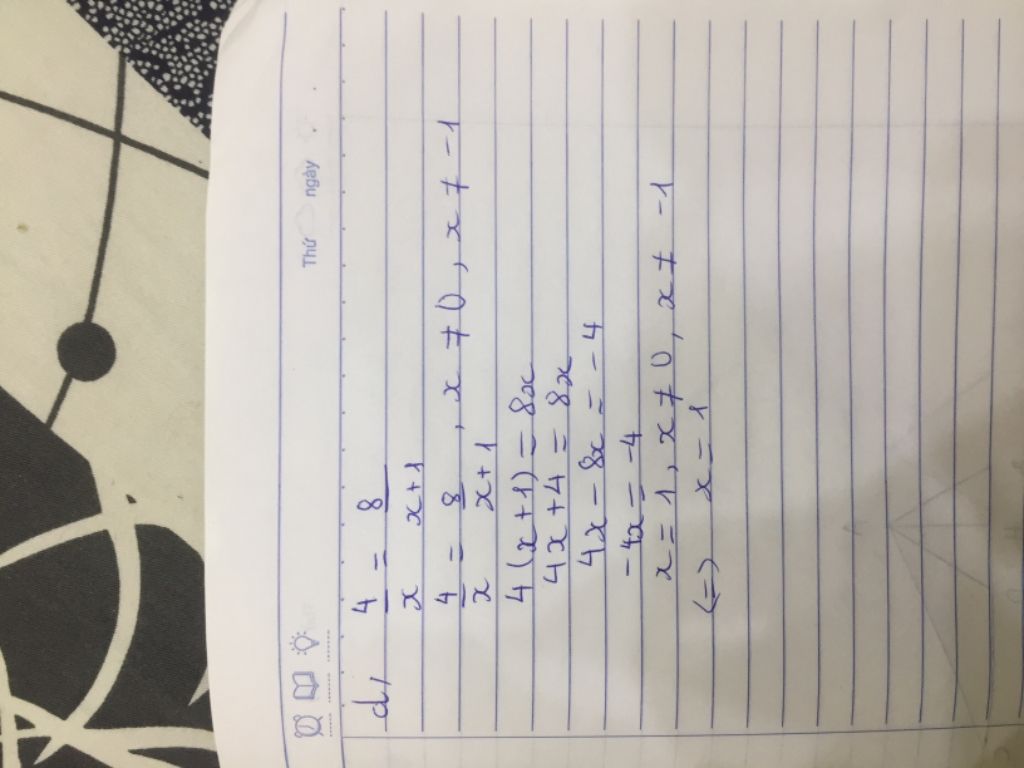 Thứ ngày
d, 4/x = 8/x+1
4/x = 8/x+1, x ≠ 0, x ≠ -1
4(x+1) = 8x
4x+4 = 8x
4x - 8x = -4
-4x = -4
x = 1, x ≠ 0, x ≠ -1
(=) x = 1